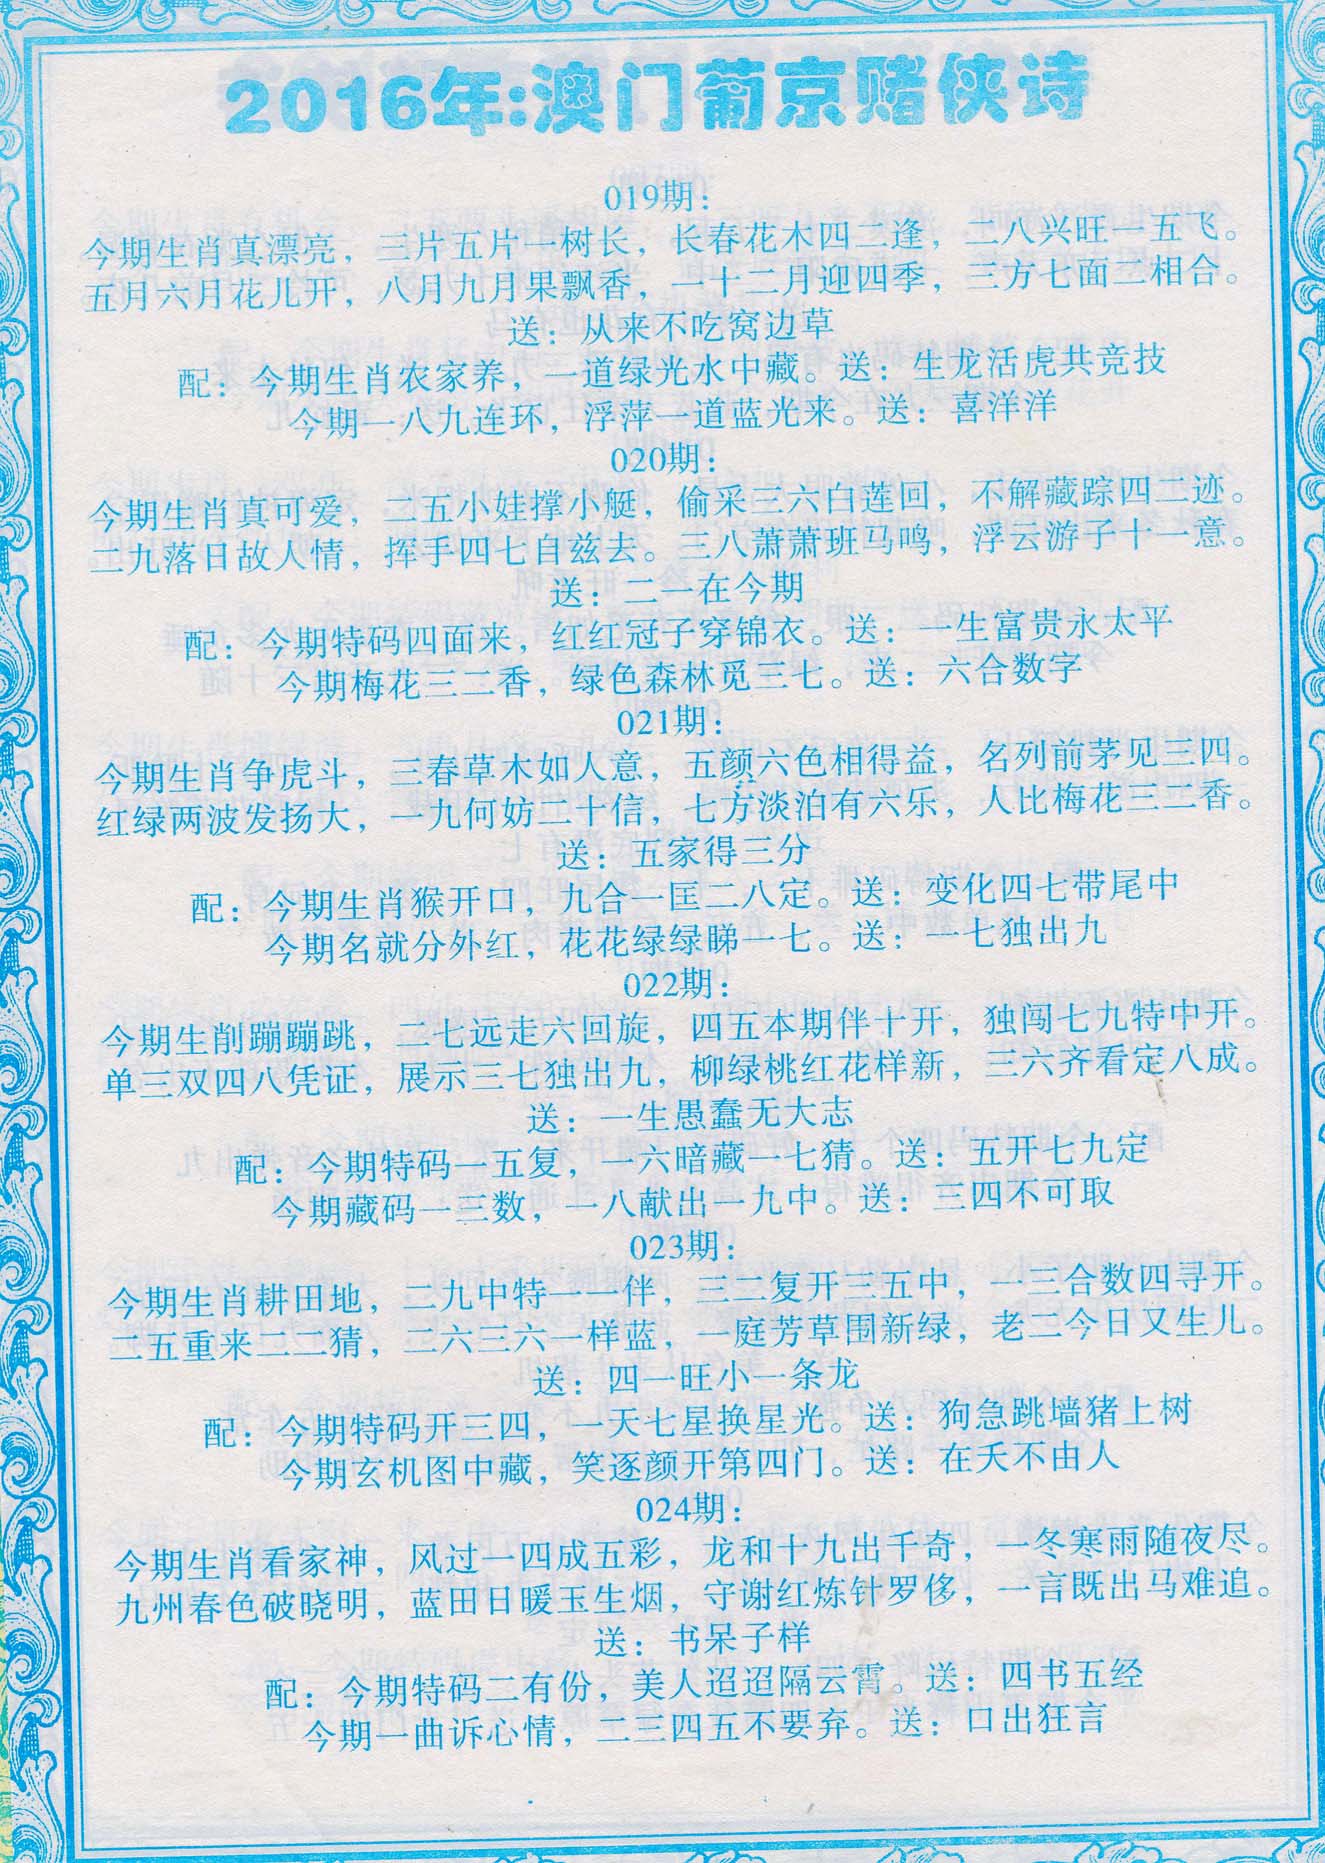 2016年:澳门葡京赌侠诗
019期:
今期生肖真漂亮，三片五片一树长，长春花木四二逢，二八兴旺一五飞。
五月六月花儿开，八月九月果飘香，一十二月迎四季，三方七面二相合。
送：从来不吃窝边草
配：今期生肖农家养，一道绿光水中藏。送：生龙活虎共竞技
今期一八九连环，浮萍一道蓝光来。送：喜洋洋
020期:
今期生肖真可爱，二五小娃撑小艇，偷采三六白莲回，不解藏踪四二迹。
二九落日故人情，挥手四七自兹去。三八萧萧班马鸣，浮云游子十一意。
送：二一在今期
配：今期特码四面来，红红冠子穿锦衣。送：一生富贵永太平
今期梅花三二香，绿色森林觅三七。送：六合数字
021期:
今期生肖争虎斗，三春草木如人意，五颜六色相得益，名列前茅见三四。
红绿两波发扬大，一九何妨二十信，七方淡泊有六乐，人比梅花三二香。
送：五家得三分
配：今期生肖猴开口，九合一匡二八定。送：变化四七带尾中
今期名就分外红，花花绿绿睇一七。送：一七独出九
022期:
今期生削蹦蹦跳，二七远走六回旋，四五本期伴十开，独闯七九特中开。
单三双四八凭证，展示三七独出九，柳绿桃红花样新，三六齐看定八成。
送：一生愚蠢无大志
配：今期特码一五复，一六暗藏一七猜。送：五开七九定
今期藏码一三数，一八献出一九中。送：三四不可取
023期:
今期生肖耕田地，二九中特一一伴，三二复开三五中，一三合数四寻开。
二五重来二二猜，二六三六一样蓝，一庭芳草围新绿，老二今日又生儿。
送：四一旺小一条龙
配：今期特码开三四，一天七星换星光。送：狗急跳墙猪上树
今期玄机图中藏，笑逐颜开第四门。送：在天不由人
024期:
今期生肖看家神，风过一四成五彩，龙和十九出千奇，一冬寒雨随夜尽。
九州春色破晓明，蓝田日暖玉生烟，守谢红炼针罗侈，一言既出马难追。
送：书呆子样
配：今期特码二有份，美人迢迢隔云霄。送：四书五经
今期一曲诉心情，二三四五不要弃。送：口出狂言